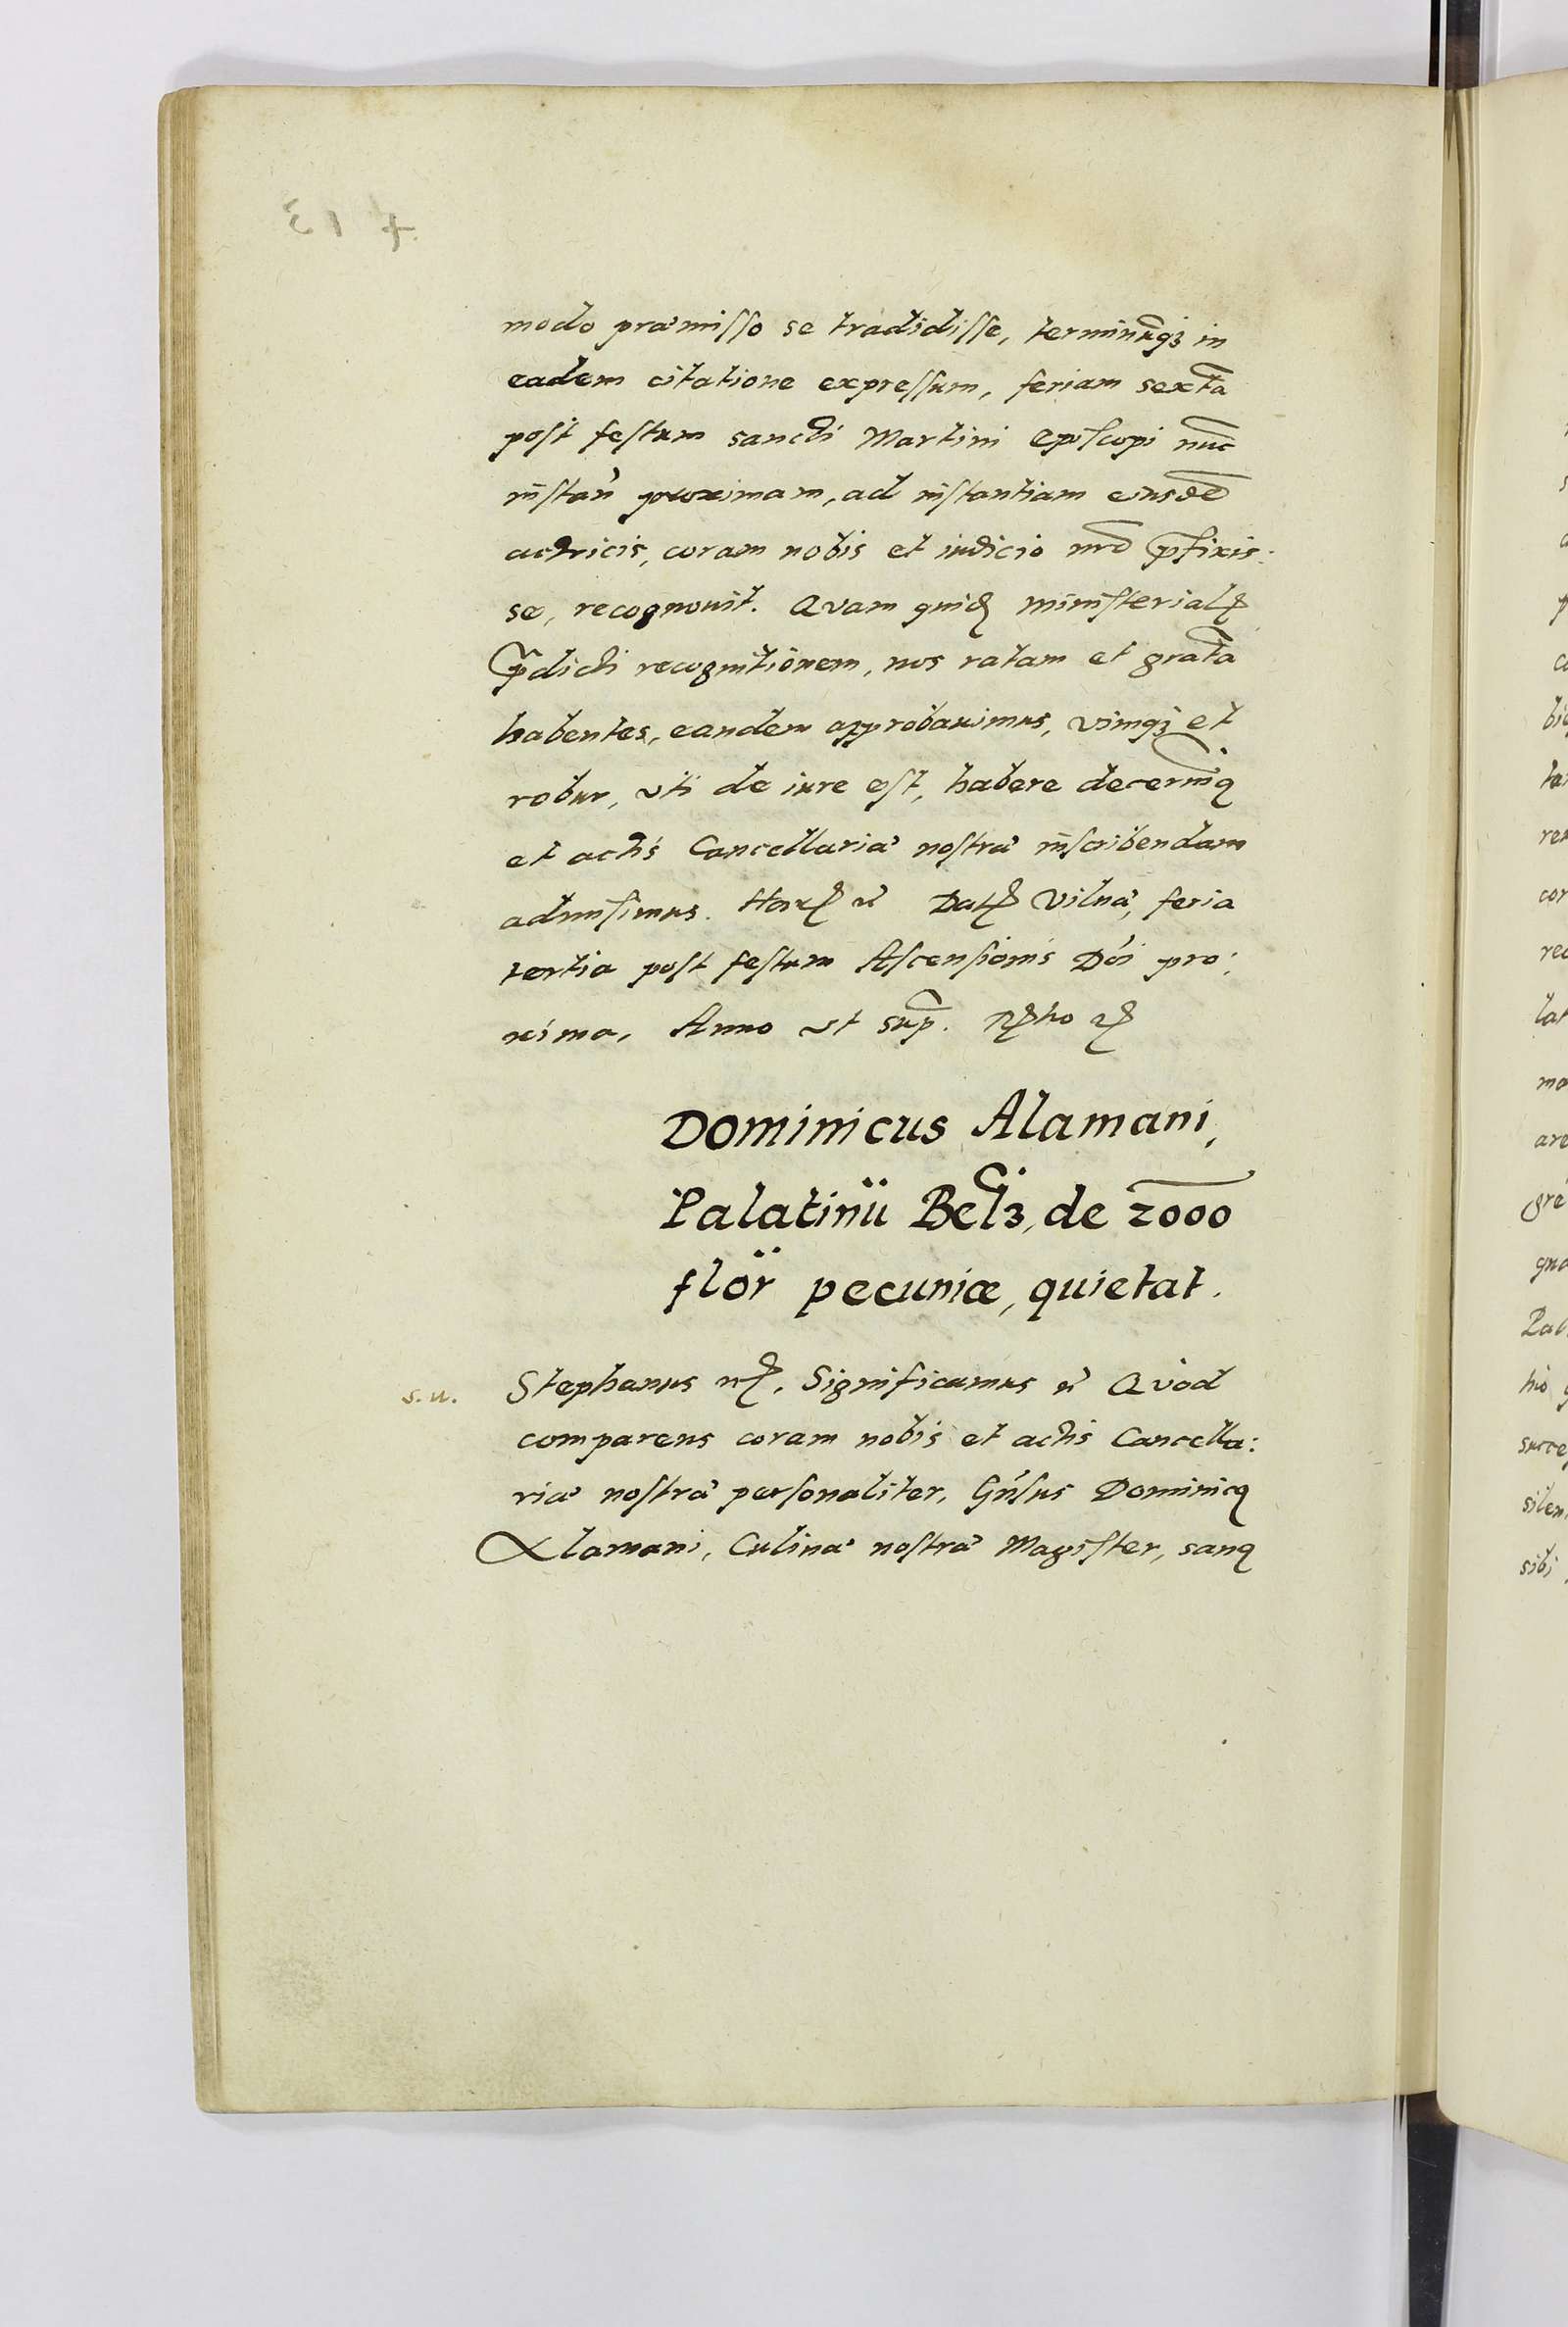 modo præmisso se tradidisse, terminūqꝫ in
eadem citatione expressum, feriam sextā
post festum sancti Martini Episcopi nūc
instań proximam, ad instantiam eiusdē
actricis, coram nobis et iudicio nrō p̄fixis:
se, recognouit. Quam quidꝫ ministerialꝭ
p̄dicti recognitionem, nos ratam et gratā
habentes, eandem approbauimus, vimqꝫ et
robur, vti de iure est, habere decernimꝰ
et actis Cancellariæ nostræ inscribendam
admisimus. Harꝭ Datꝭ Vilnæ, feria
tertia post festum Ascensionis Dńi pro:
xima, Anno vt sup̄.
Dominicus Alamani,
Palatinū Belz, de 2000
flor̈ pecuniæ, quietat.
s. u. Stephanus Significamus Quod
comparens coram nobis et actis Cancella:
riæ nostræ personaliter, Gńsus Dominicꝰ
Alamani, Culinæ nostræ Magister, sanꝰ